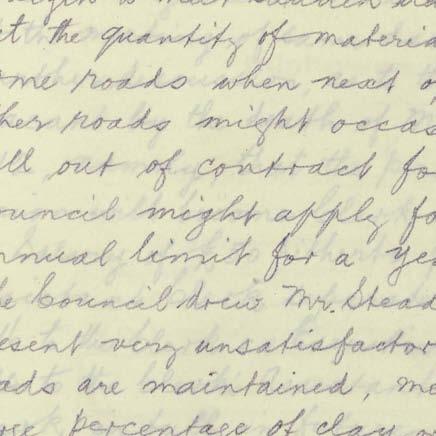 ct the quantity of materia
ome roads when next o
her roads might occas
ll out of contract fo
ouncil might apply fo
nnual limit for a yea
he Council drew Mr. Stead
esent very unsatisfactor
ads are maintained, me
percentage of clay